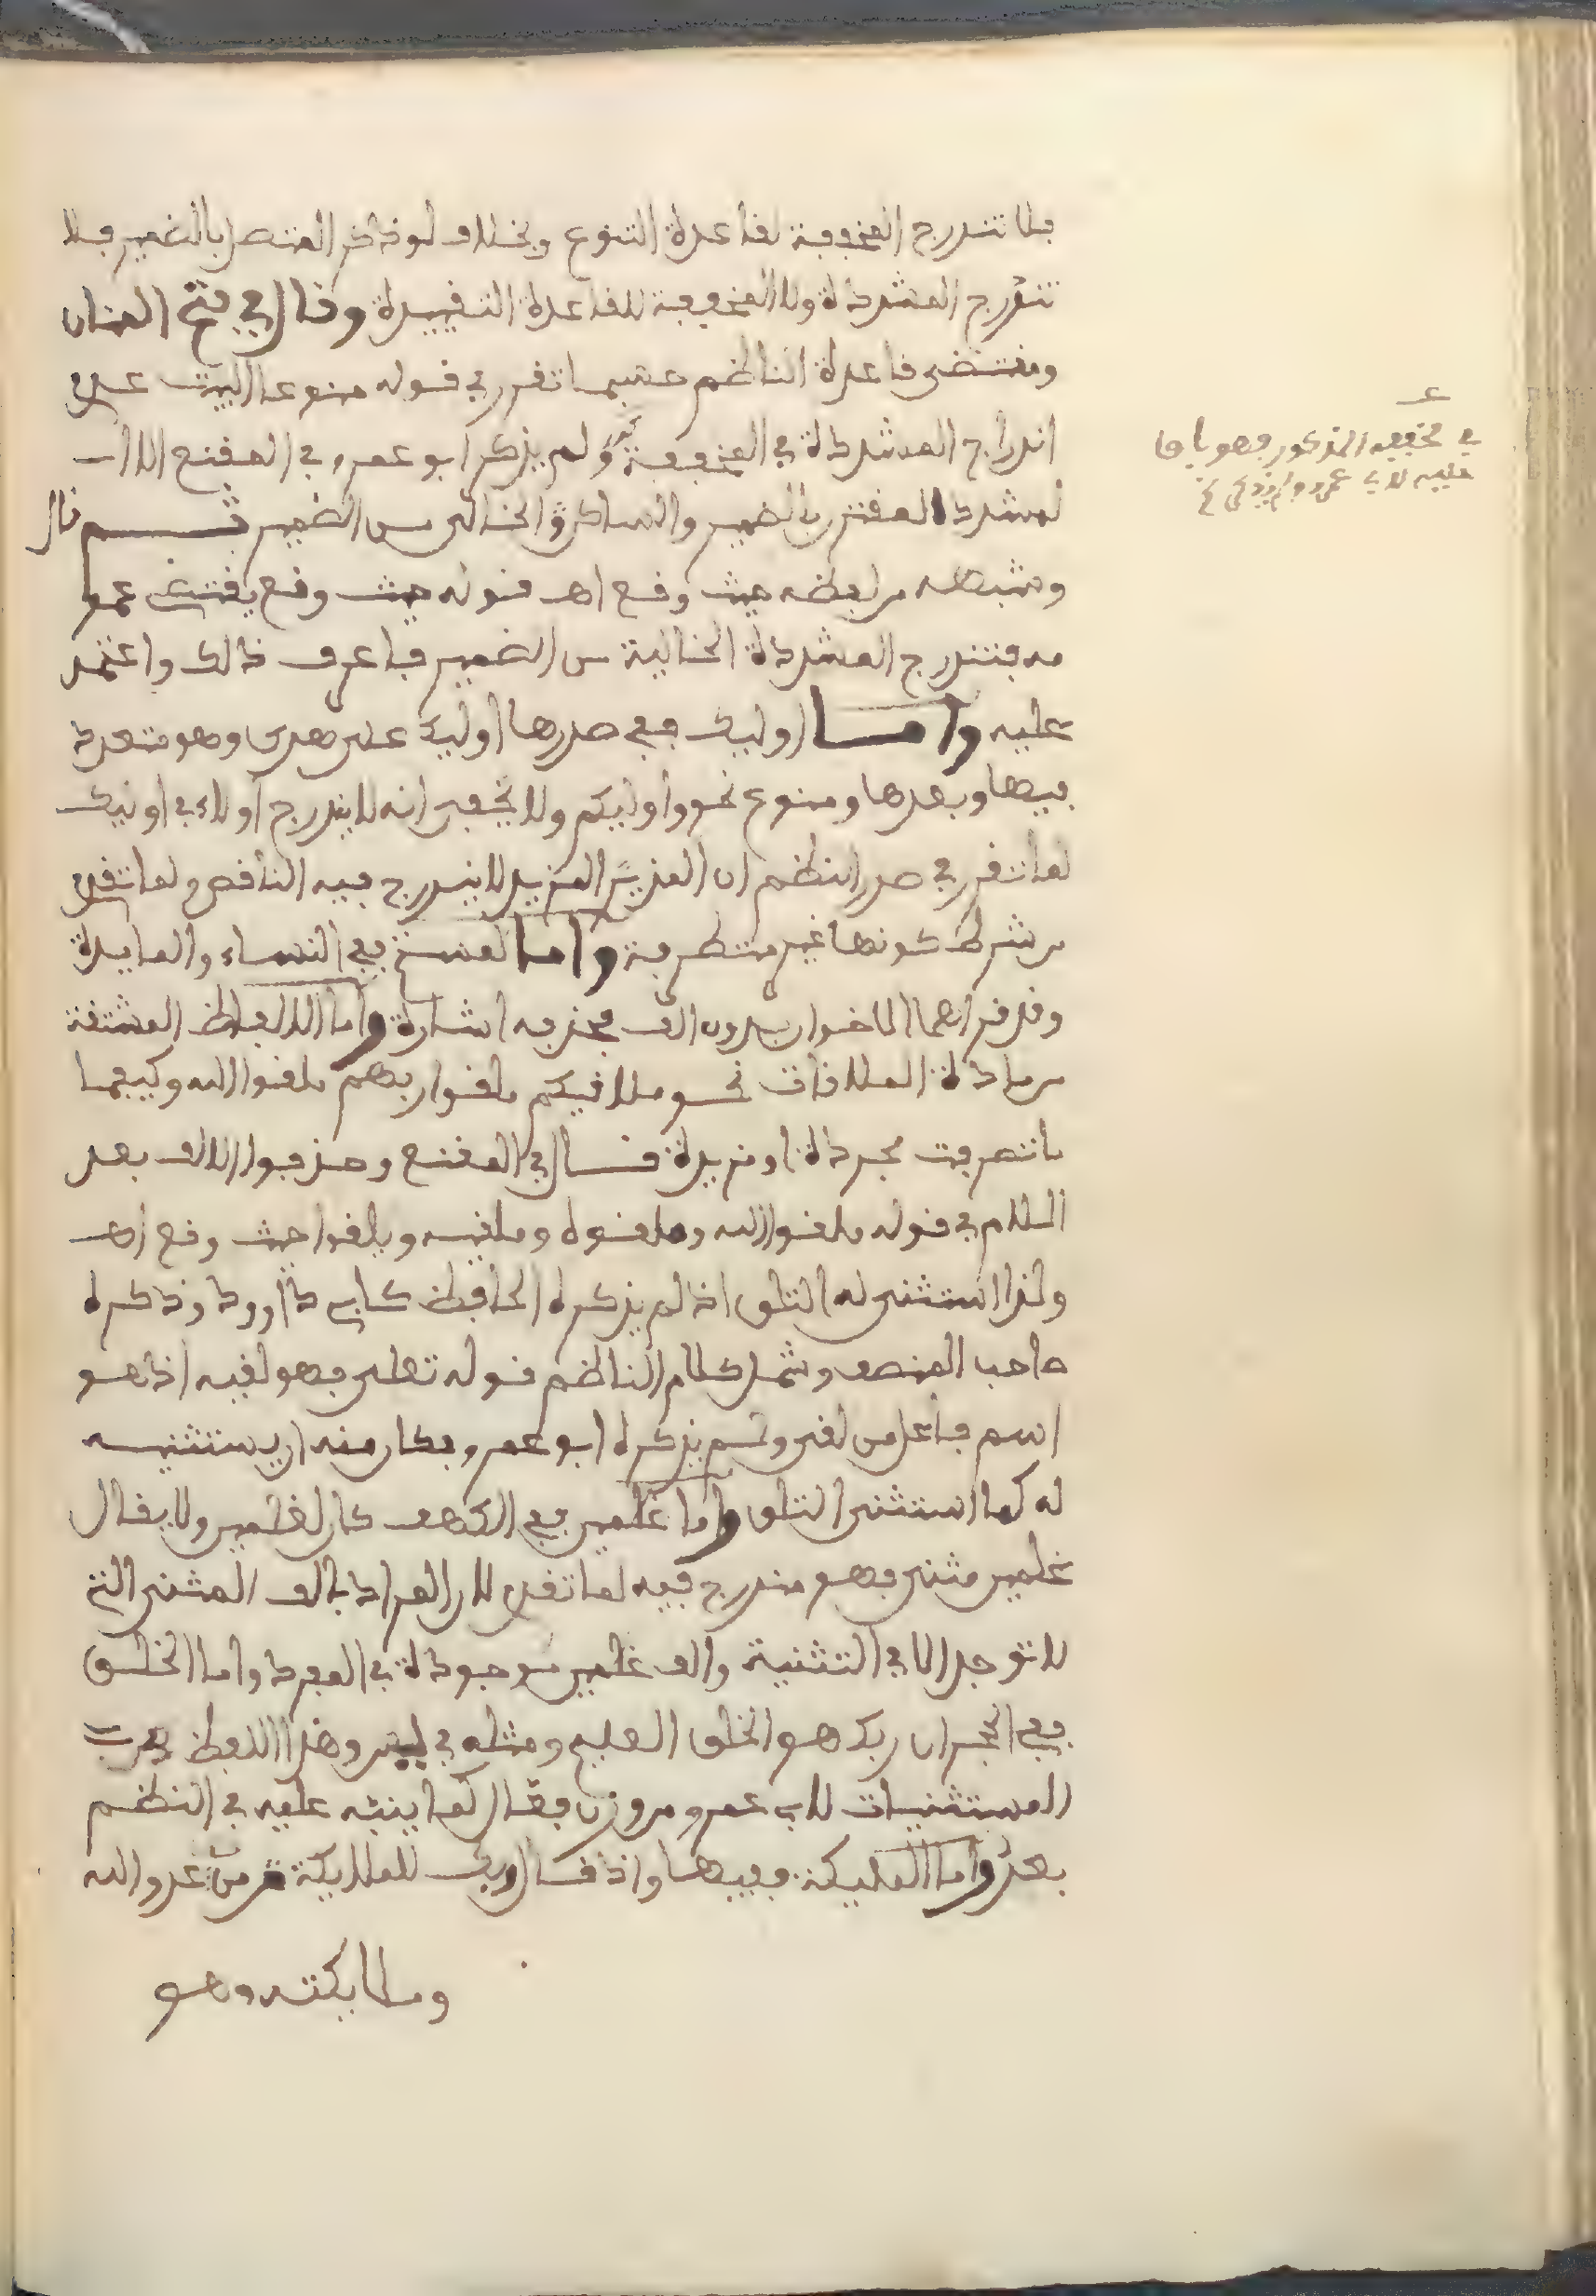 فلا تندرج المخففة لقاعدة التنوع وبخلاف لو ذكر المتصل بالضمير فلا
تندرج المشددة ولا المخففة للقاعدة التقييدة وقال في فتح المنان
ومقتضى قاعدة الناظم حسبما تقرر في قوله منوعا البيت عدم
اندراج المشددة في المخففة ولم يذكر ابو عمرو في المقنع الا
لمشدد المقترن بالضمير والساكن والخالي من الضمير ثم قال
وشبهه من لفظه حيث وقع اهـ قوله حيث وقع يقتضي عمو
مه فتندرج المشددة الخالية من الضمير فاعرف ذالك واعتمد
عليه واما اوليك ففي صدرها اوليك على هدى وهو متعدد
فيها وبعدها ومنوع نحو واوليكم ولا يخفى انه لا يندرج أولاء في اوليك
لما تقرر في صدر النظم ان المزيد لا يندرج فيه الناقص ولما تقدم
من شرط كونها غير متطرفة واما لمستم ففي النساء والمايدة
وقد قراهما الاخوان بدون الف فحذفه اشارة واما الالفاظ المشتقة
من مادة الملاقات نحو ملاقيكم ملقوا ربهم ملقوا الله وكيفما
ما تصرفت مجردة او مزيدة قال في المقنع وحذفوا الالف بعد
اللام في قوله ملقوا الله وملقوه وملقيه ويلقوا حيث وقع اهـ
ولذا استثنى له التلاق اذ لم يذكره الحافظ كابي داوود وذكره
صاحب المنصف وشمل كلام الناظم قوله تعلى فهو لقيه اذ هو
اسم فاعل من لقى ولم يذكره ابو عمرو فكان منه ان يستثنيه
له كما استثنى التلق واما غلمين ففي الكهف كان لغلمين ولا يقال
غلمين مثنى فهو مندرج فيه لما تقدم لان المراد بالف المثنى التي
لا توجد الا في التثنية والف غلمين موجودة في المفرد واما الخلق
ففي الحجر ان ربك هو الخلق العليم ومثله في يس وهذا اللفظ
المستثنيات لابي عمرو من وزن فعال كما ينبه عليه في النظم
بعد واما المليكة ففيها واذ قال ربك للملايكة من عدوا لله
وملايكته وهو
في مخففه المذكور فهو باق
عليه لابي عمرو